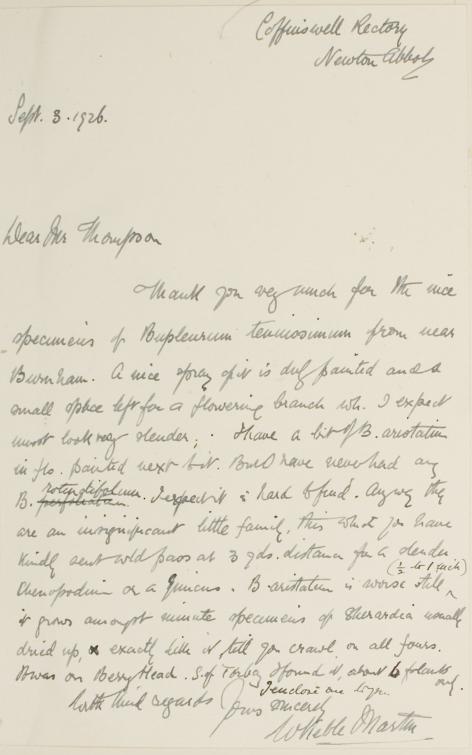 Coffinswell Rectory
Newton Abbot
Sept. 3. 1926.
Dear Mr Thompson
Thank you very much for the nice
specimens of Bupleurum tenuissimum from near
Burnham. A nice spray of it is duly painted and a
small space left for a flowering branch wh. I expect
must look very slender; I have a bit of B. aristatum
in flr. painted next to it. But I have never had any
B. perfoliatum rotundifolium. I expect it is hard to find. Anyway they
are an insignificant little family, this what you have
kindly sent wld pass at 3 yds. distance for a slender
Chenopodium or a Juncus. B. aristatum is worse still (½ to 1 inch)
it grows amongst minute specimens of Sherardia usually
dried up, & exactly like it till you crawl on all fours.
It was on Berry Head. S. of Torbay I found it, about 6 plants only.
I enclose one to you.
With kind regards
Yours sincerely
W Keble Martin